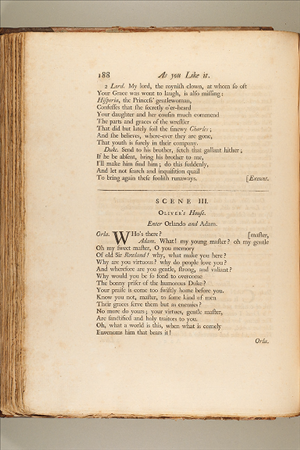 188 As you Like it.
2 Lord. My lord, the roynish clown, at whom so oft
Your Grace was wont to laugh, is also missing:
Hisperia, the Princess' gentlewoman,
Confesses that she secretly o'er-heard
Your daughter and her cousin much commend
The parts and graces of the wrestler
That did but lately foil the sinewy Charles;
And she believes, where-ever they are gone,
That youth is surely in their company.
Duke. Send to his brother, fetch that gallant hither;
If he be absent, bring his brother to me,
I'll make him find him; do this suddenly,
And let not search and inquisition quail
To bring again these foolish runaways. [Exeunt.
SCENE III.
OLIVER's House.
Enter Orlando and Adam.
Orla. WHo's there? [master,
Adam. What! my young master? oh my gentle
Oh my sweet master, O you memory
Of old Sir Rowland! why, what make you here?
Why are you virtuous? why do people love you?
And wherefore are you gentle, strong, and valiant?
Why would you be so fond to overcome
The bonny priser of the humorous Duke?
Your praise is come too swiftly home before you.
Know you not, master, to some kind of men
Their graces serve them but as enemies?
No more do yours; your virtues, gentle master,
Are sanctified and holy traitors to you.
Oh, what a world is this, when what is comely
Envenoms him that bears it!
Orla.